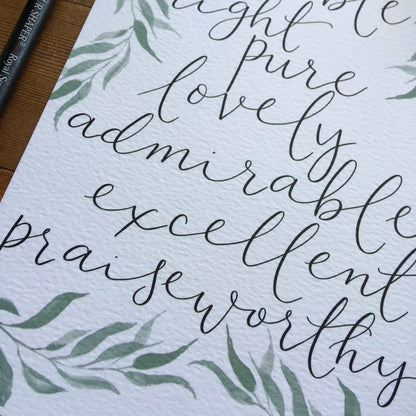 right
pure
lovely
admirable
excellent
praiseworthy
SHAPER®
Royal